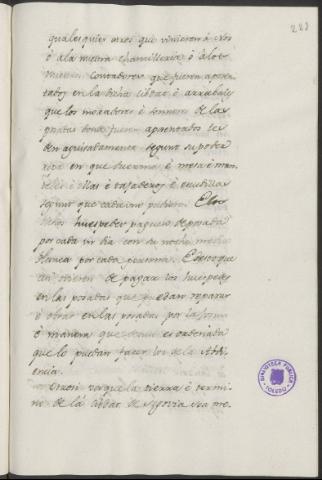 283
quales quier otros que vinieren á Nos
ó á la nuestra chancilleria, ó á los
nuestros Contadores que fueren aposen
tados en la dicha cibdat é arrabales
que los moradores é dueños de las
posadas donde fueren aposentados les
den aguisadamente segunt su poder
ropa en que duerman é mesa é man
teles é ollas é tajaderos é escudillas
segunt que cada uno pudiere. E los
dichos huespedes paguen de posada
por cada un dia con su noche media
blanca por cada persona. E eso que
an de pagar los huespedes
en las posadas que puedan reparar
é obrar en las posadas por la forma
é manera que es ordenada
que lo puedan facer los de la Abdi
encia.
Otrosi porque la tierra é termi
no de la cibdat de Segovia sea me
BIBLIOTECA PUBLICA
TOLEDO